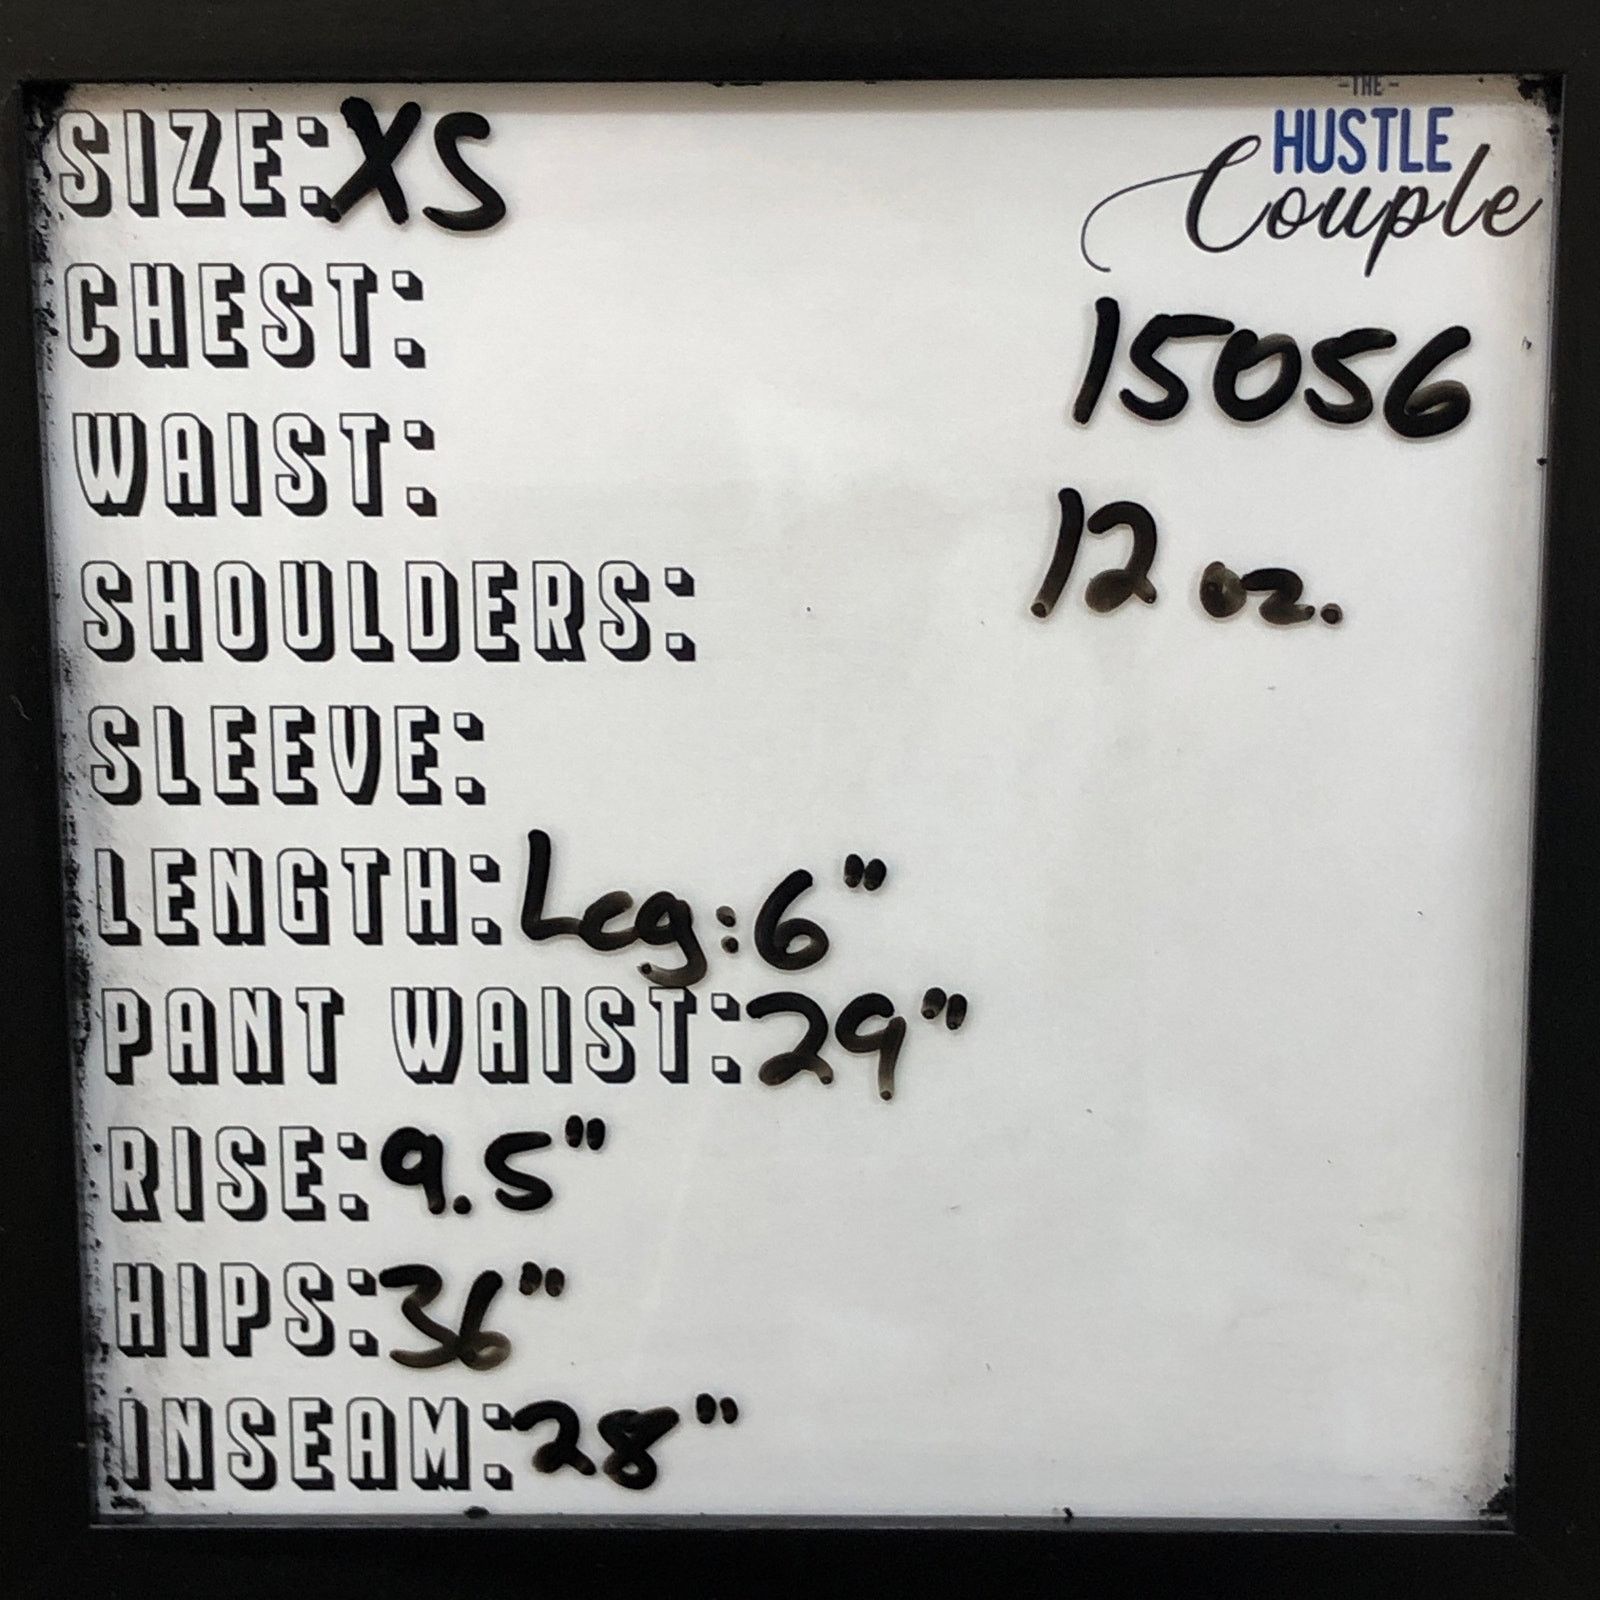 SIZE: XS
-THE-
HUSTLE
Couple
CHEST:
15056
WAIST:
12 oz.
SHOULDERS:
SLEEVE:
LENGTH: Leg: 6"
PANT WAIST: 29"
RISE: 9.5"
HIPS: 36"
INSEAM: 28"